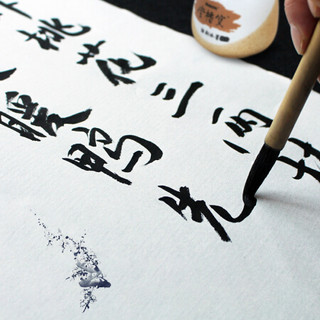 桃花三两
暖鸭先